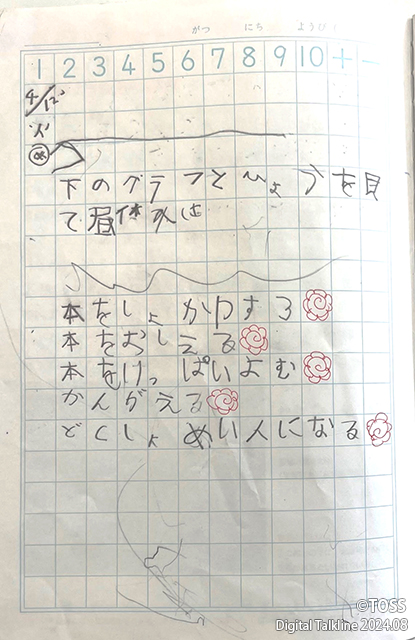 がつ にち ようび
1 2 3 4 5 6 7 8 9 10 + −
4/12
火
下のグラフとひょうを見
て昼休みは
本をしょかりする
本をおしえる
本をけっぱいよむ
かんがえる
どくしょめい人になる
©TOSS
Digital Talkline 2024.08